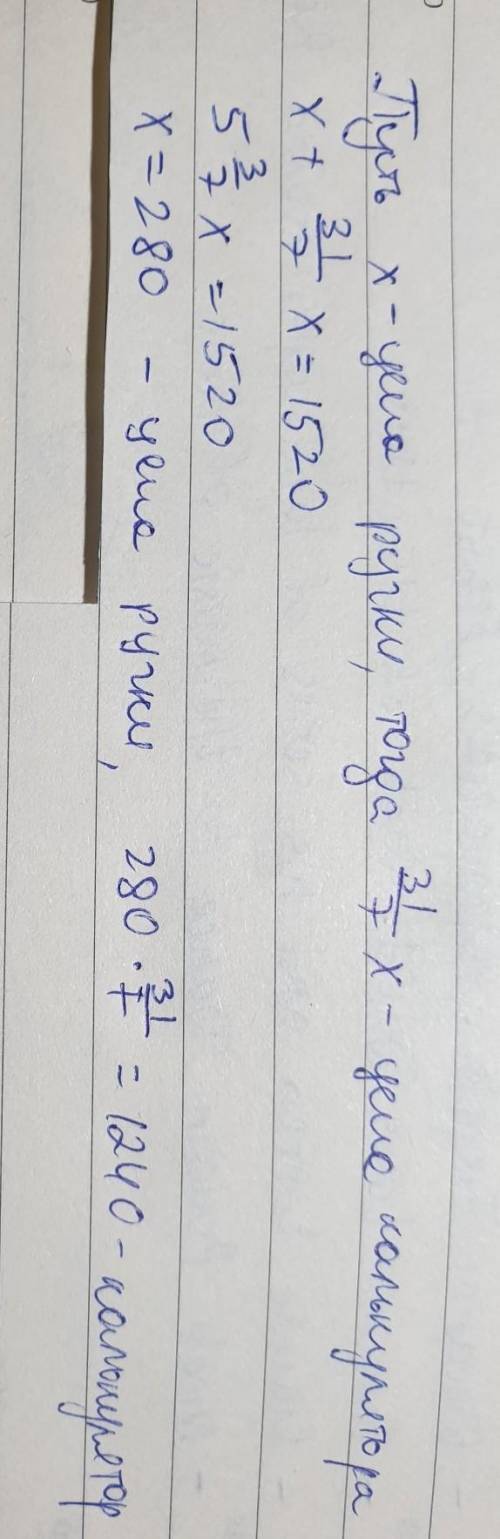 Пусть x - цена ручки, тогда 31/7 x - цена калькулятора
x + 31/7 x = 1520
5 3/7 x = 1520
x = 280 - цена ручки, 280 · 31/7 = 1240 - калькулятор